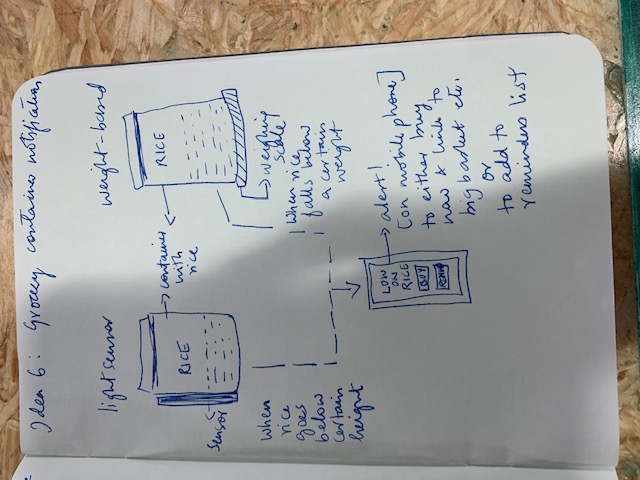 Idea 6: Grocery container notification
light sensor
weight-based
RICE
RICE
container
with
rice
sensor
weighing
scale
when
rice
goes
below
certain
height
when rice
falls below
a certain
weight
LOW
ON
RICE
BUY
alert!
[on mobile phone]
to either buy
now & link to
bigbasket etc.
or
to add to
reminders list